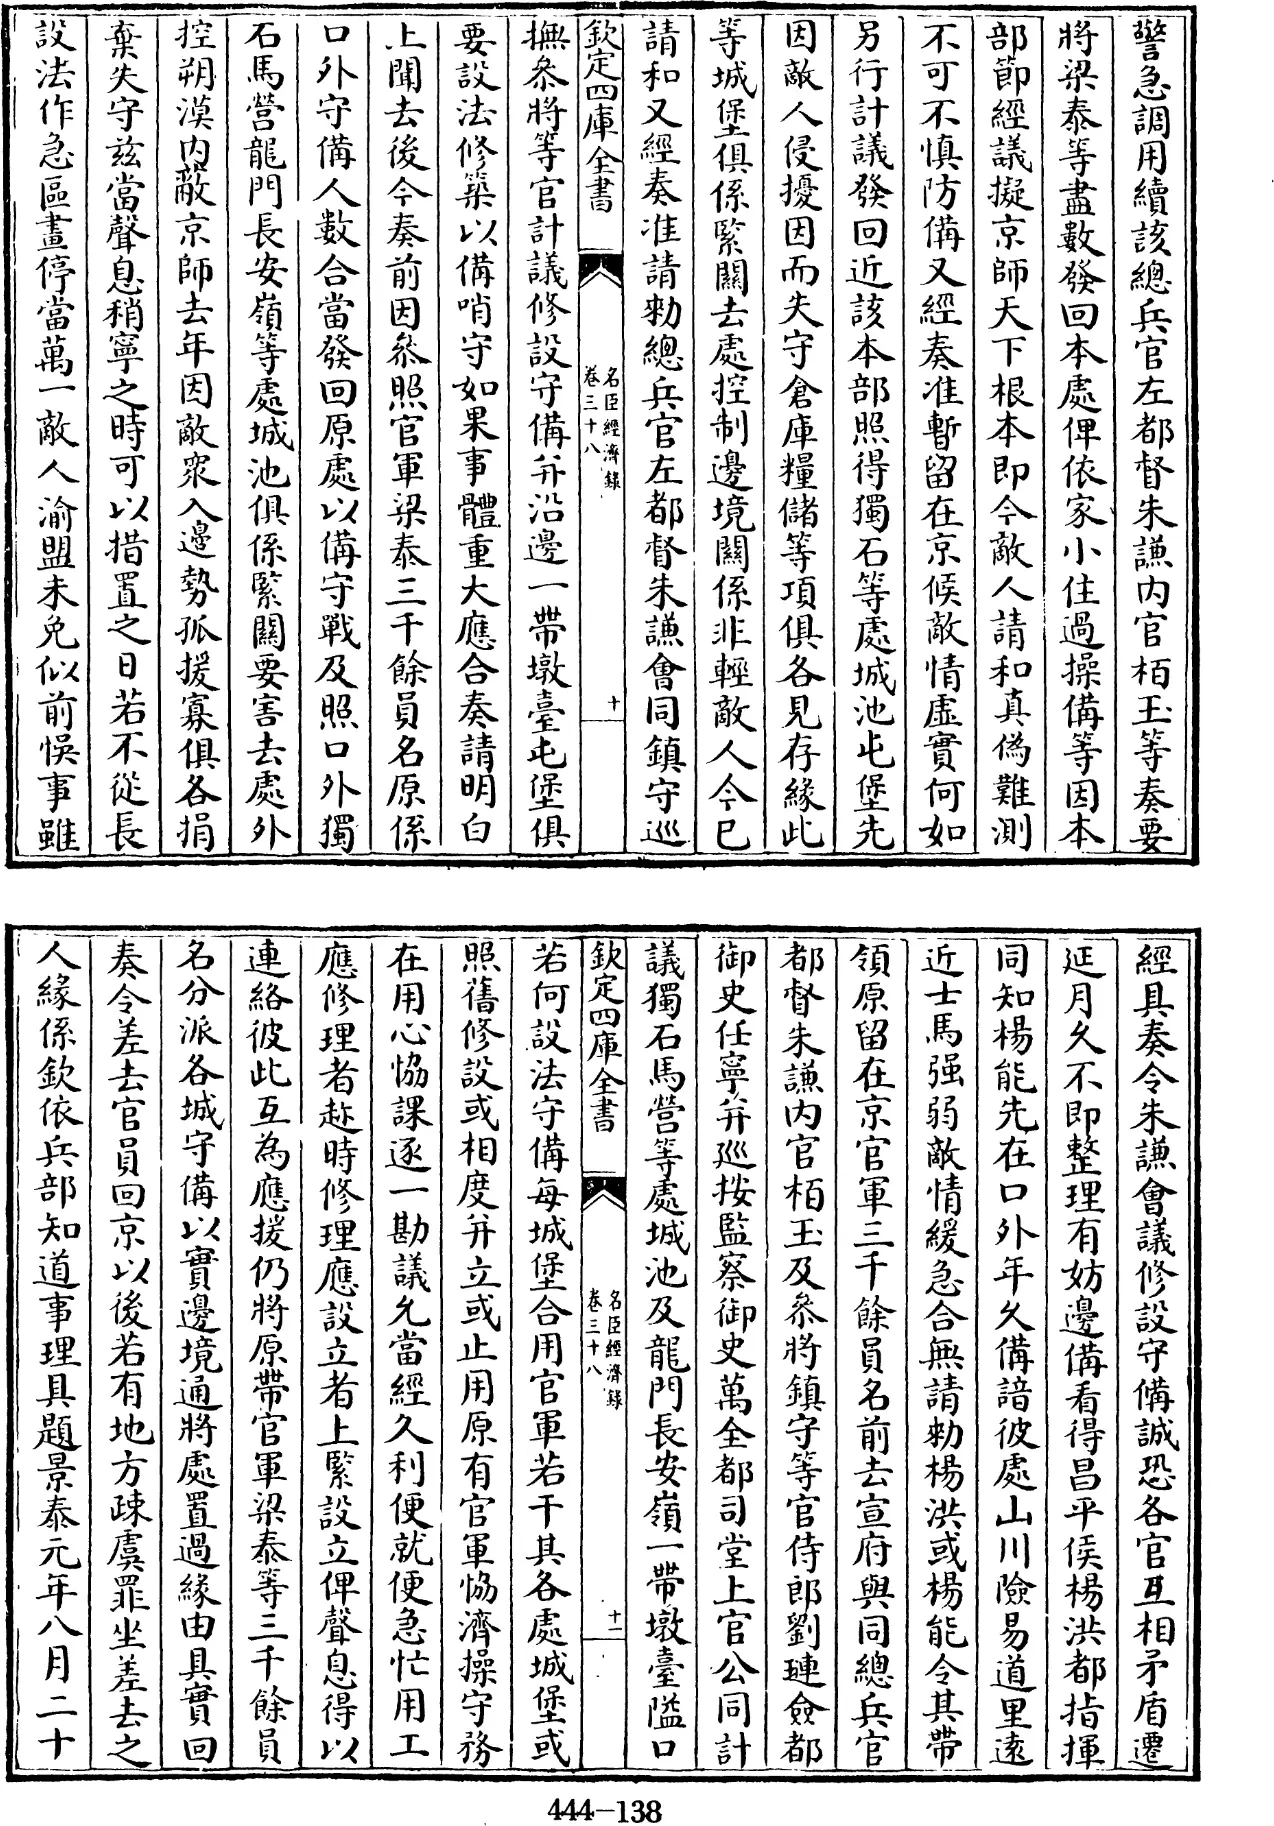 警急調用續該總兵官左都督朱謙内官栢玉等奏要
將梁泰等盡數發回本處俾依家小住過操備等因本
部節經議擬京師天下根本即今敵人請和真偽難測
不可不慎防備又經奏准暫留在京候敵情虛實何如
另行計議發回近該本部照得獨石等處城池屯堡先
因敵人侵擾因而失守倉庫糧儲等項俱各見存緣此
等城堡俱係緊關去處控制邊境關係非輕敵人今已
請和又經奏准請勑總兵官左都督朱謙會同鎮守巡
欽定四庫全書
名臣經濟錄
卷三十八
十
撫叅將等官計議修設守備并沿邊一帶墩臺屯堡俱
要設法修築以備哨守如果事體重大應合奏請明白
上聞去後今奏前因叅照官軍梁泰三千餘員名原係
口外守備人數合當發回原處以備守戰及照口外獨
石馬營龍門長安嶺等處城池俱係緊關要害去處外
控朔漠内蔽京師去年因敵衆入邊勢孤援寡俱各捐
棄失守兹當聲息稍寧之時可以措置之日若不從長
設法作急區畫停當萬一敵人渝盟未免似前悞事雖
經具奏令朱謙會議修設守備誠恐各官互相矛盾遷
延月久不即整理有妨邊備看得昌平侯楊洪都指揮
同知楊能先在口外年久備諳彼處山川險易道里遠
近士馬强弱敵情緩急合無請勑楊洪或楊能令其帶
領原留在京官軍三千餘員名前去宣府與同總兵官
都督朱謙内官栢玉及叅將鎮守等官侍郎劉璉僉都
御史任寧并巡按監察御史萬全都司堂上官公同計
議獨石馬營等處城池及龍門長安嶺一帶墩臺隘口
欽定四庫全書
名臣經濟録
卷三十八
十一
若何設法守備每城堡合用官軍若干其各處城堡或
照舊修設或相度并立或止用原有官軍恊濟操守務
在用心恊謀逐一勘議允當經久利便就便急忙用工
應修理者趂時修理應設立者上緊設立俾聲息得以
連絡彼此互為應援仍將原帶官軍梁泰等三千餘員
名分派各城守備以實邊境通將處置過緣由具實回
奏令差去官員回京以後若有地方疎虞罪坐差去之
人緣係欽依兵部知道事理具題景泰元年八月二十
444-138